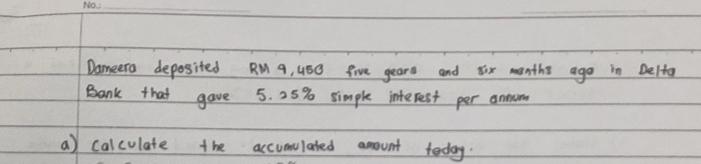 No.:
Dameera deposited RM 9,450 five years and six months ago in Delta
Bank that gave 5.25% simple interest per annum
a) Calculate the accumulated amount today.